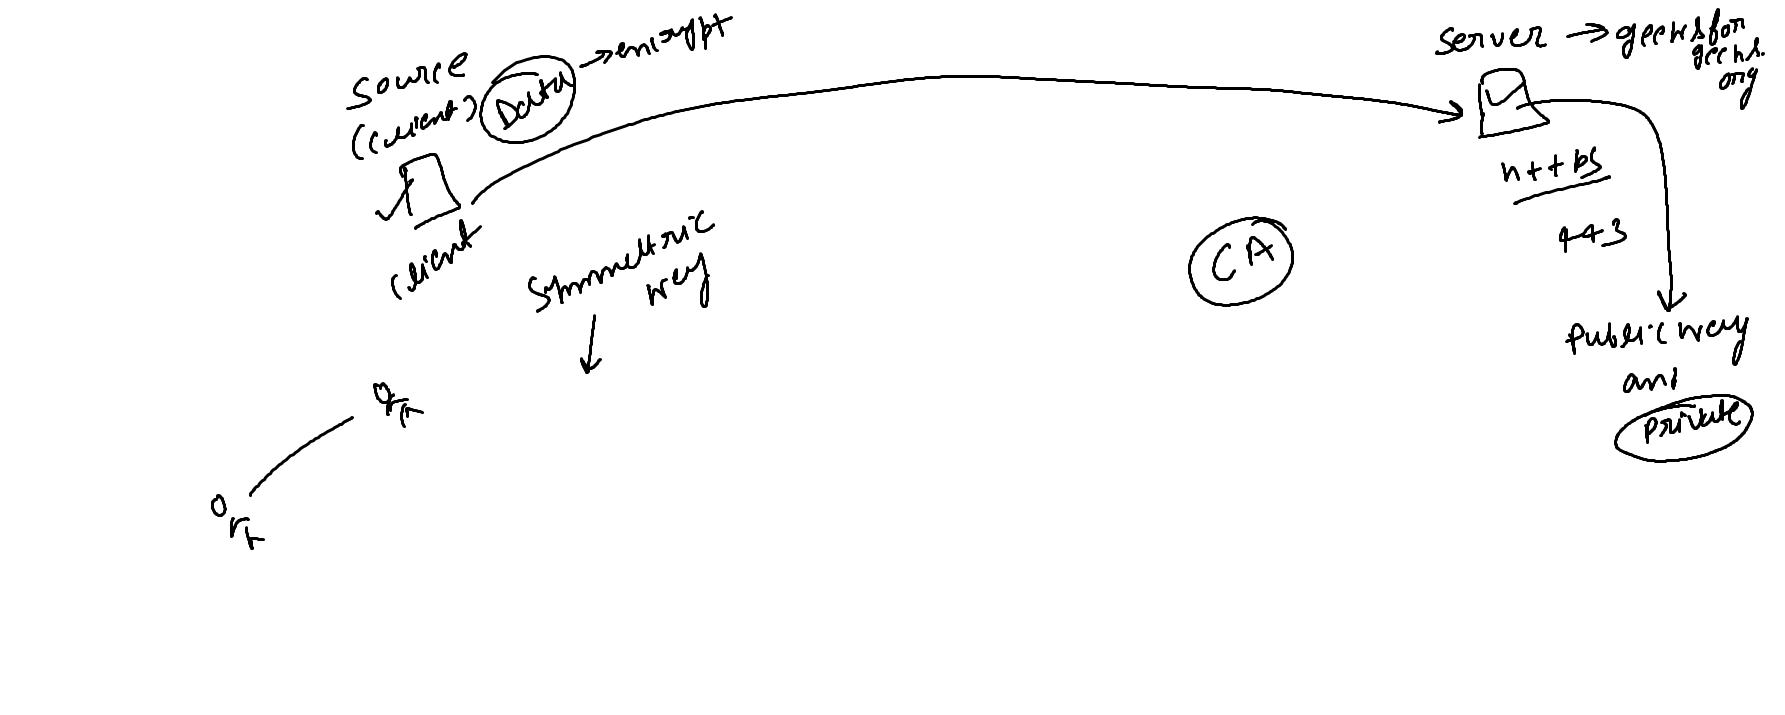 Source
(client)
Data → encrypt
client
Symmetric
key
CA
Server → geeksfor
geeks.
org
https
443
Public key
and
Private